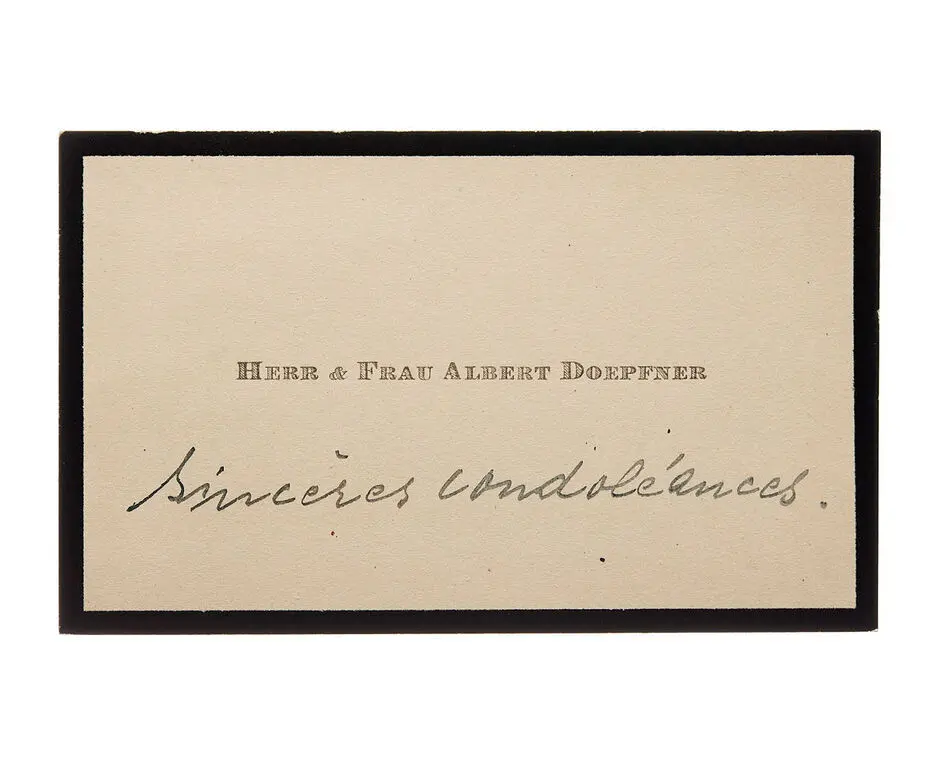 HERR & FRAU ALBERT DOEPFNER
Sincères condoléances.